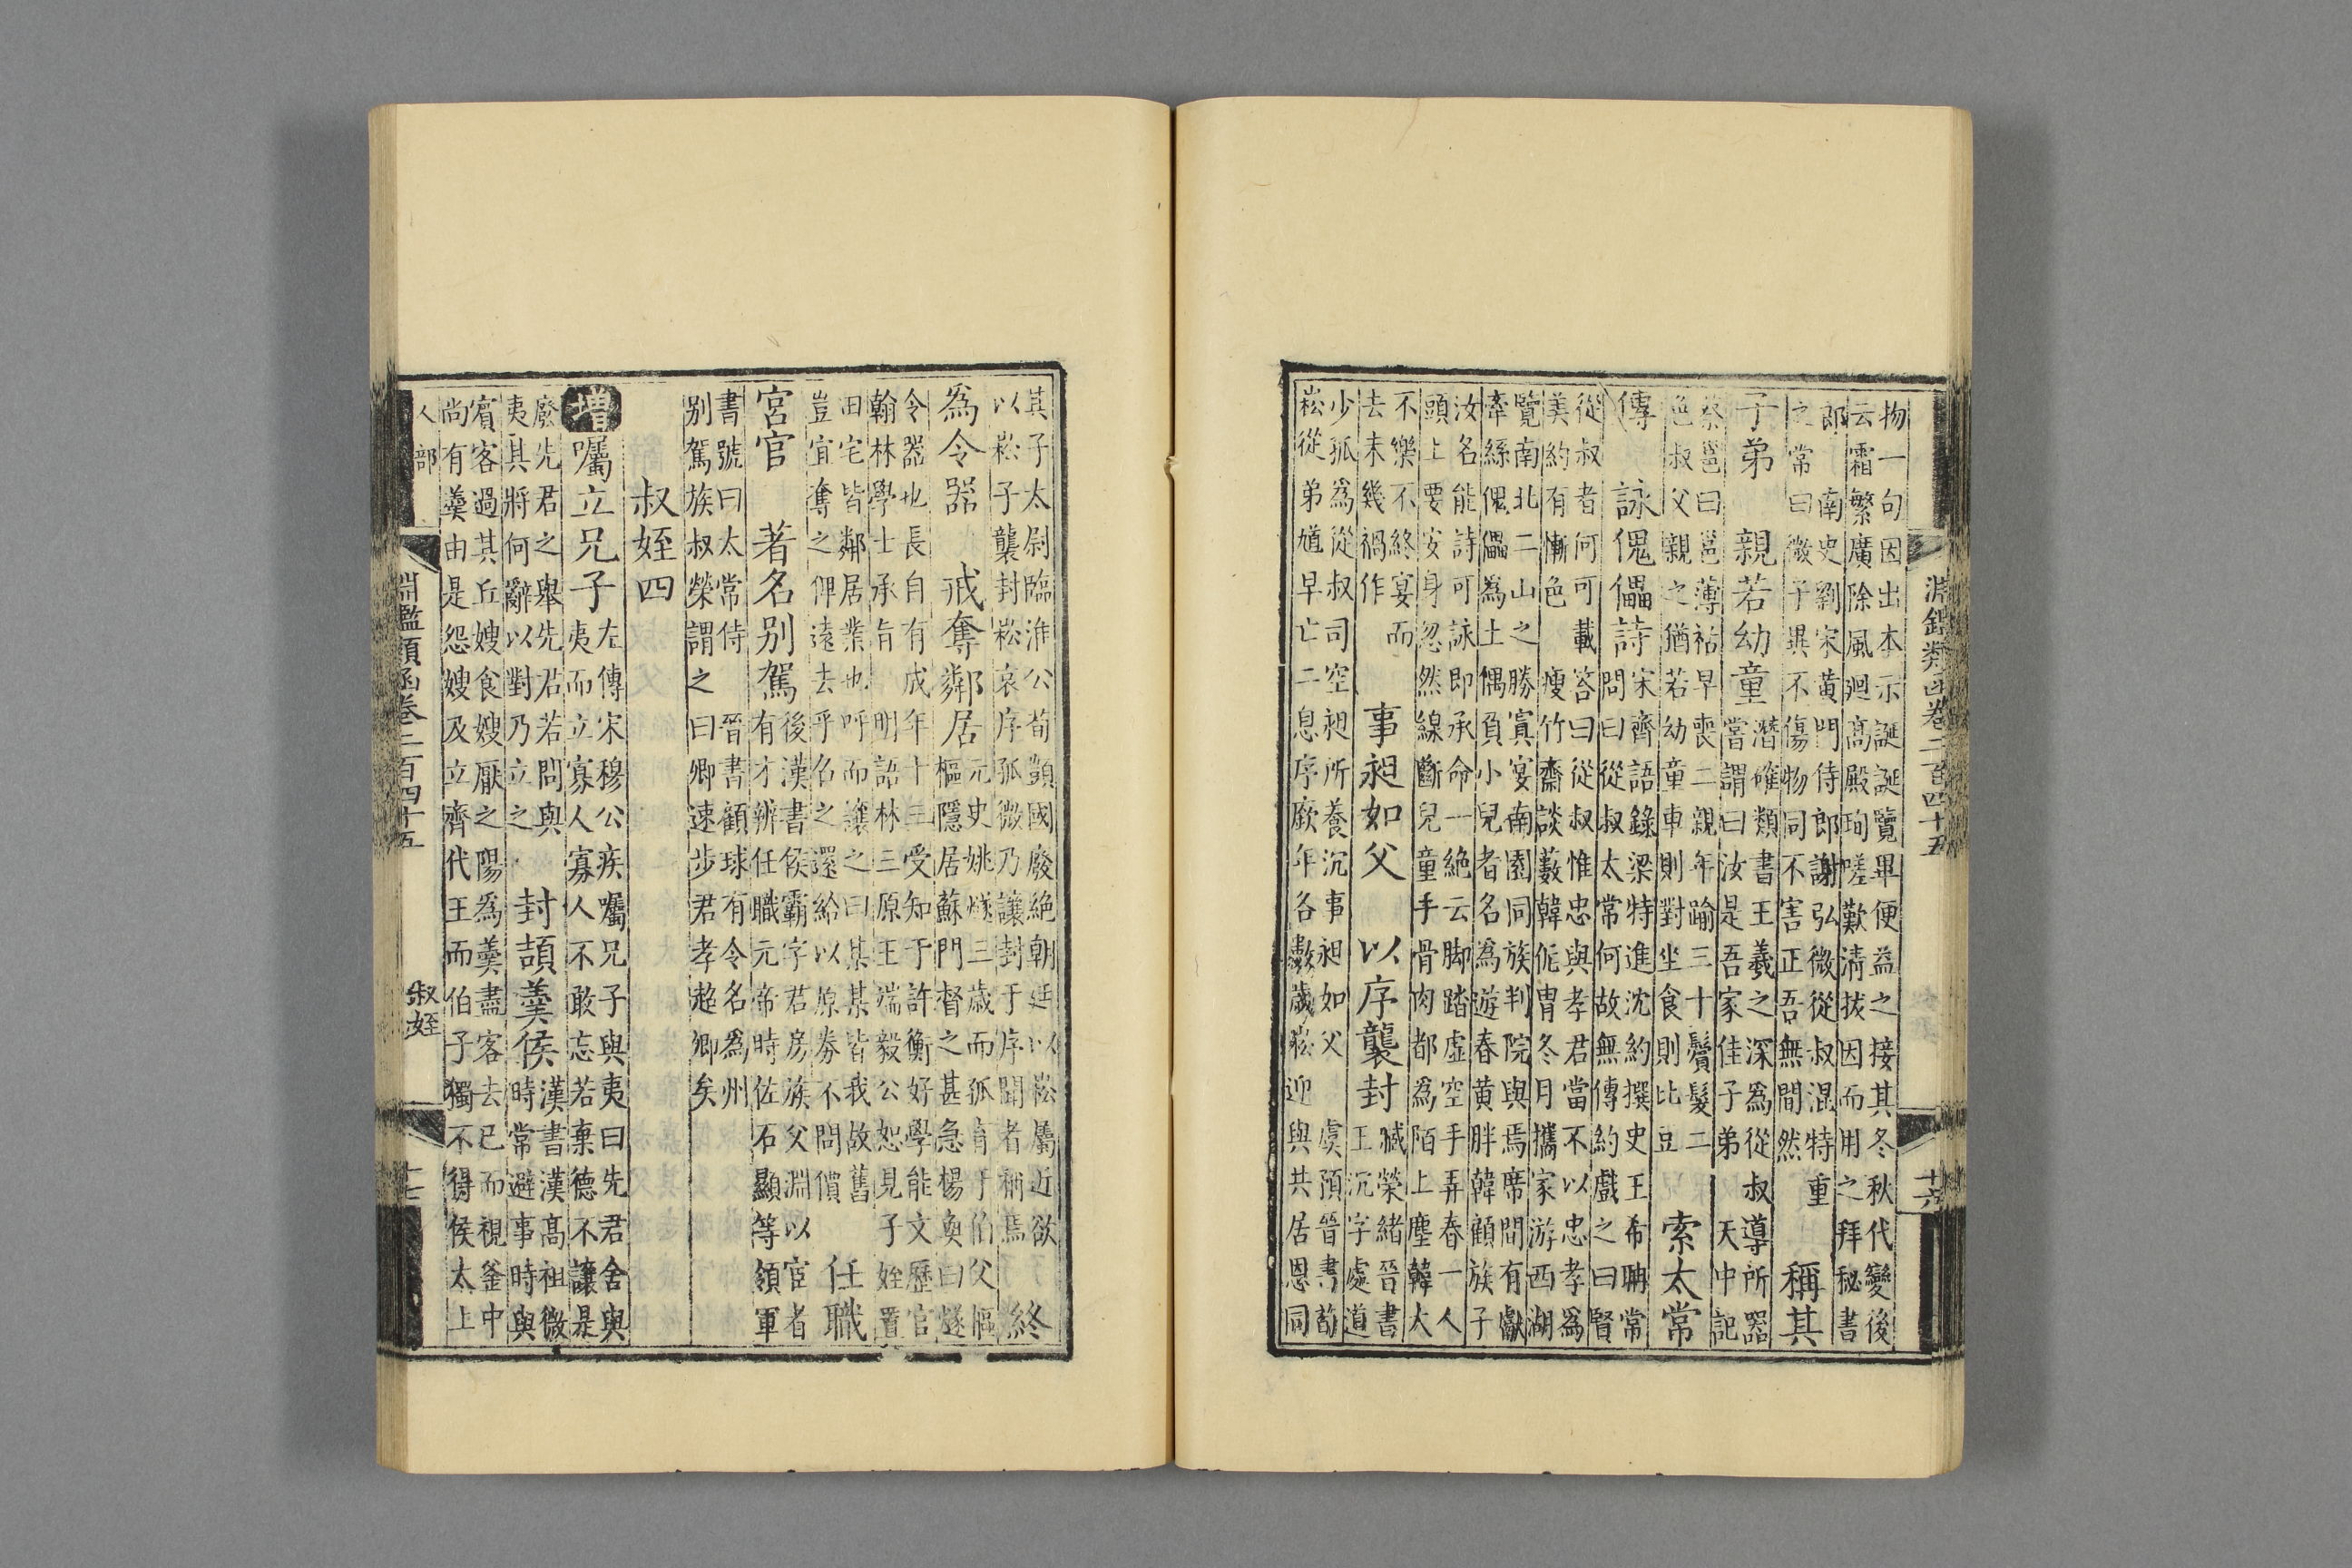 淵鑑類函卷二百四十五
十六
物一句因出本示誕誕覽畢便益之接其冬秋代變後
云霜繁廣除風迴高殿珣嗟歎清拔因而用之拜秘書
郎 南史劉宋黄門侍郎謝弘微從叔混特重
之常曰微子異不傷物同不害正吾無間然
稱其
子弟 親若幼童
潛確類書王羲之深為從叔導所器
當謂曰汝是吾家佳子弟 天中記
蔡邕曰邕薄祜早喪二親年踰三十鬢髮二
色叔父親之猶若幼童車則對坐食則比豆
索太常
傳 詠傀儡詩
宋齊語錄梁特進沈約撰史王希聃常
問曰從叔太常何故無傳約戲之曰賢
從叔者何可載答曰從叔惟忠與孝君當不以忠孝為
美約有慚色 瘦竹齋談藪韓侂胄冬月攜家游西湖
覽南北二山之勝寘宴南園同族判院與焉席間有獻
牽絲傀儡為土偶負小兒者名為遊春黄胖韓顧族子
汝名能詩可詠即承命一絶云脚踏虛空手弄春一人
頭上要安身忽然線斷兒童手骨肉都為陌上塵韓大
不樂不終宴而
去未幾禍作
事昶如父 以序襲封
臧榮緒晉書
王沉字處道
少孤為從叔司空昶所養沉事昶如父 虞預晉書荀
崧從弟馗早亡二息序廞年各數歲崧迎與共居恩同
其子太尉臨淮公荀顗國廢絶朝廷以崧屬近欲
以崧子襲封崧哀序孤微乃讓封于序聞者稱焉
終
為令器 戒奪鄰居
元史姚燧三歲而孤育于伯父樞
樞隱居蘇門督之甚急楊奐曰燧
令器也長自有成年十三受知于許衡好學能文歷官
翰林學士承旨 明語林三原王端毅公恕見子姪置
田宅皆鄰居業也呼而讓之曰某某皆我故舊
豈宜奪之俾遠去乎名之還給以原券不問價
任職
宮官 著名别駕
後漢書侯霸字君房族父淵以宦者
有才辨任職元帝時佐石顯等領軍
書號曰太常侍 晉書顧球有令名為州
别駕族叔榮謂之曰卿速步君孝超卿矣
叔姪四
增 囑立兄子
左傳宋穆公疾囑兄子與夷曰先君舍與
夷而立寡人寡人不敢忘若棄德不讓是
廢先君之舉先君若問與
夷其將何辭以對乃立之
封頡羹侯
漢書漢高祖微
時常避事時與
賓客過其丘嫂食嫂厭之陽為羹盡客去已而視釜中
尚有羹由是怨嫂及立齊代王而伯子獨不得侯太上
人部
淵鑑類函卷二百四十五
叔姪
十七